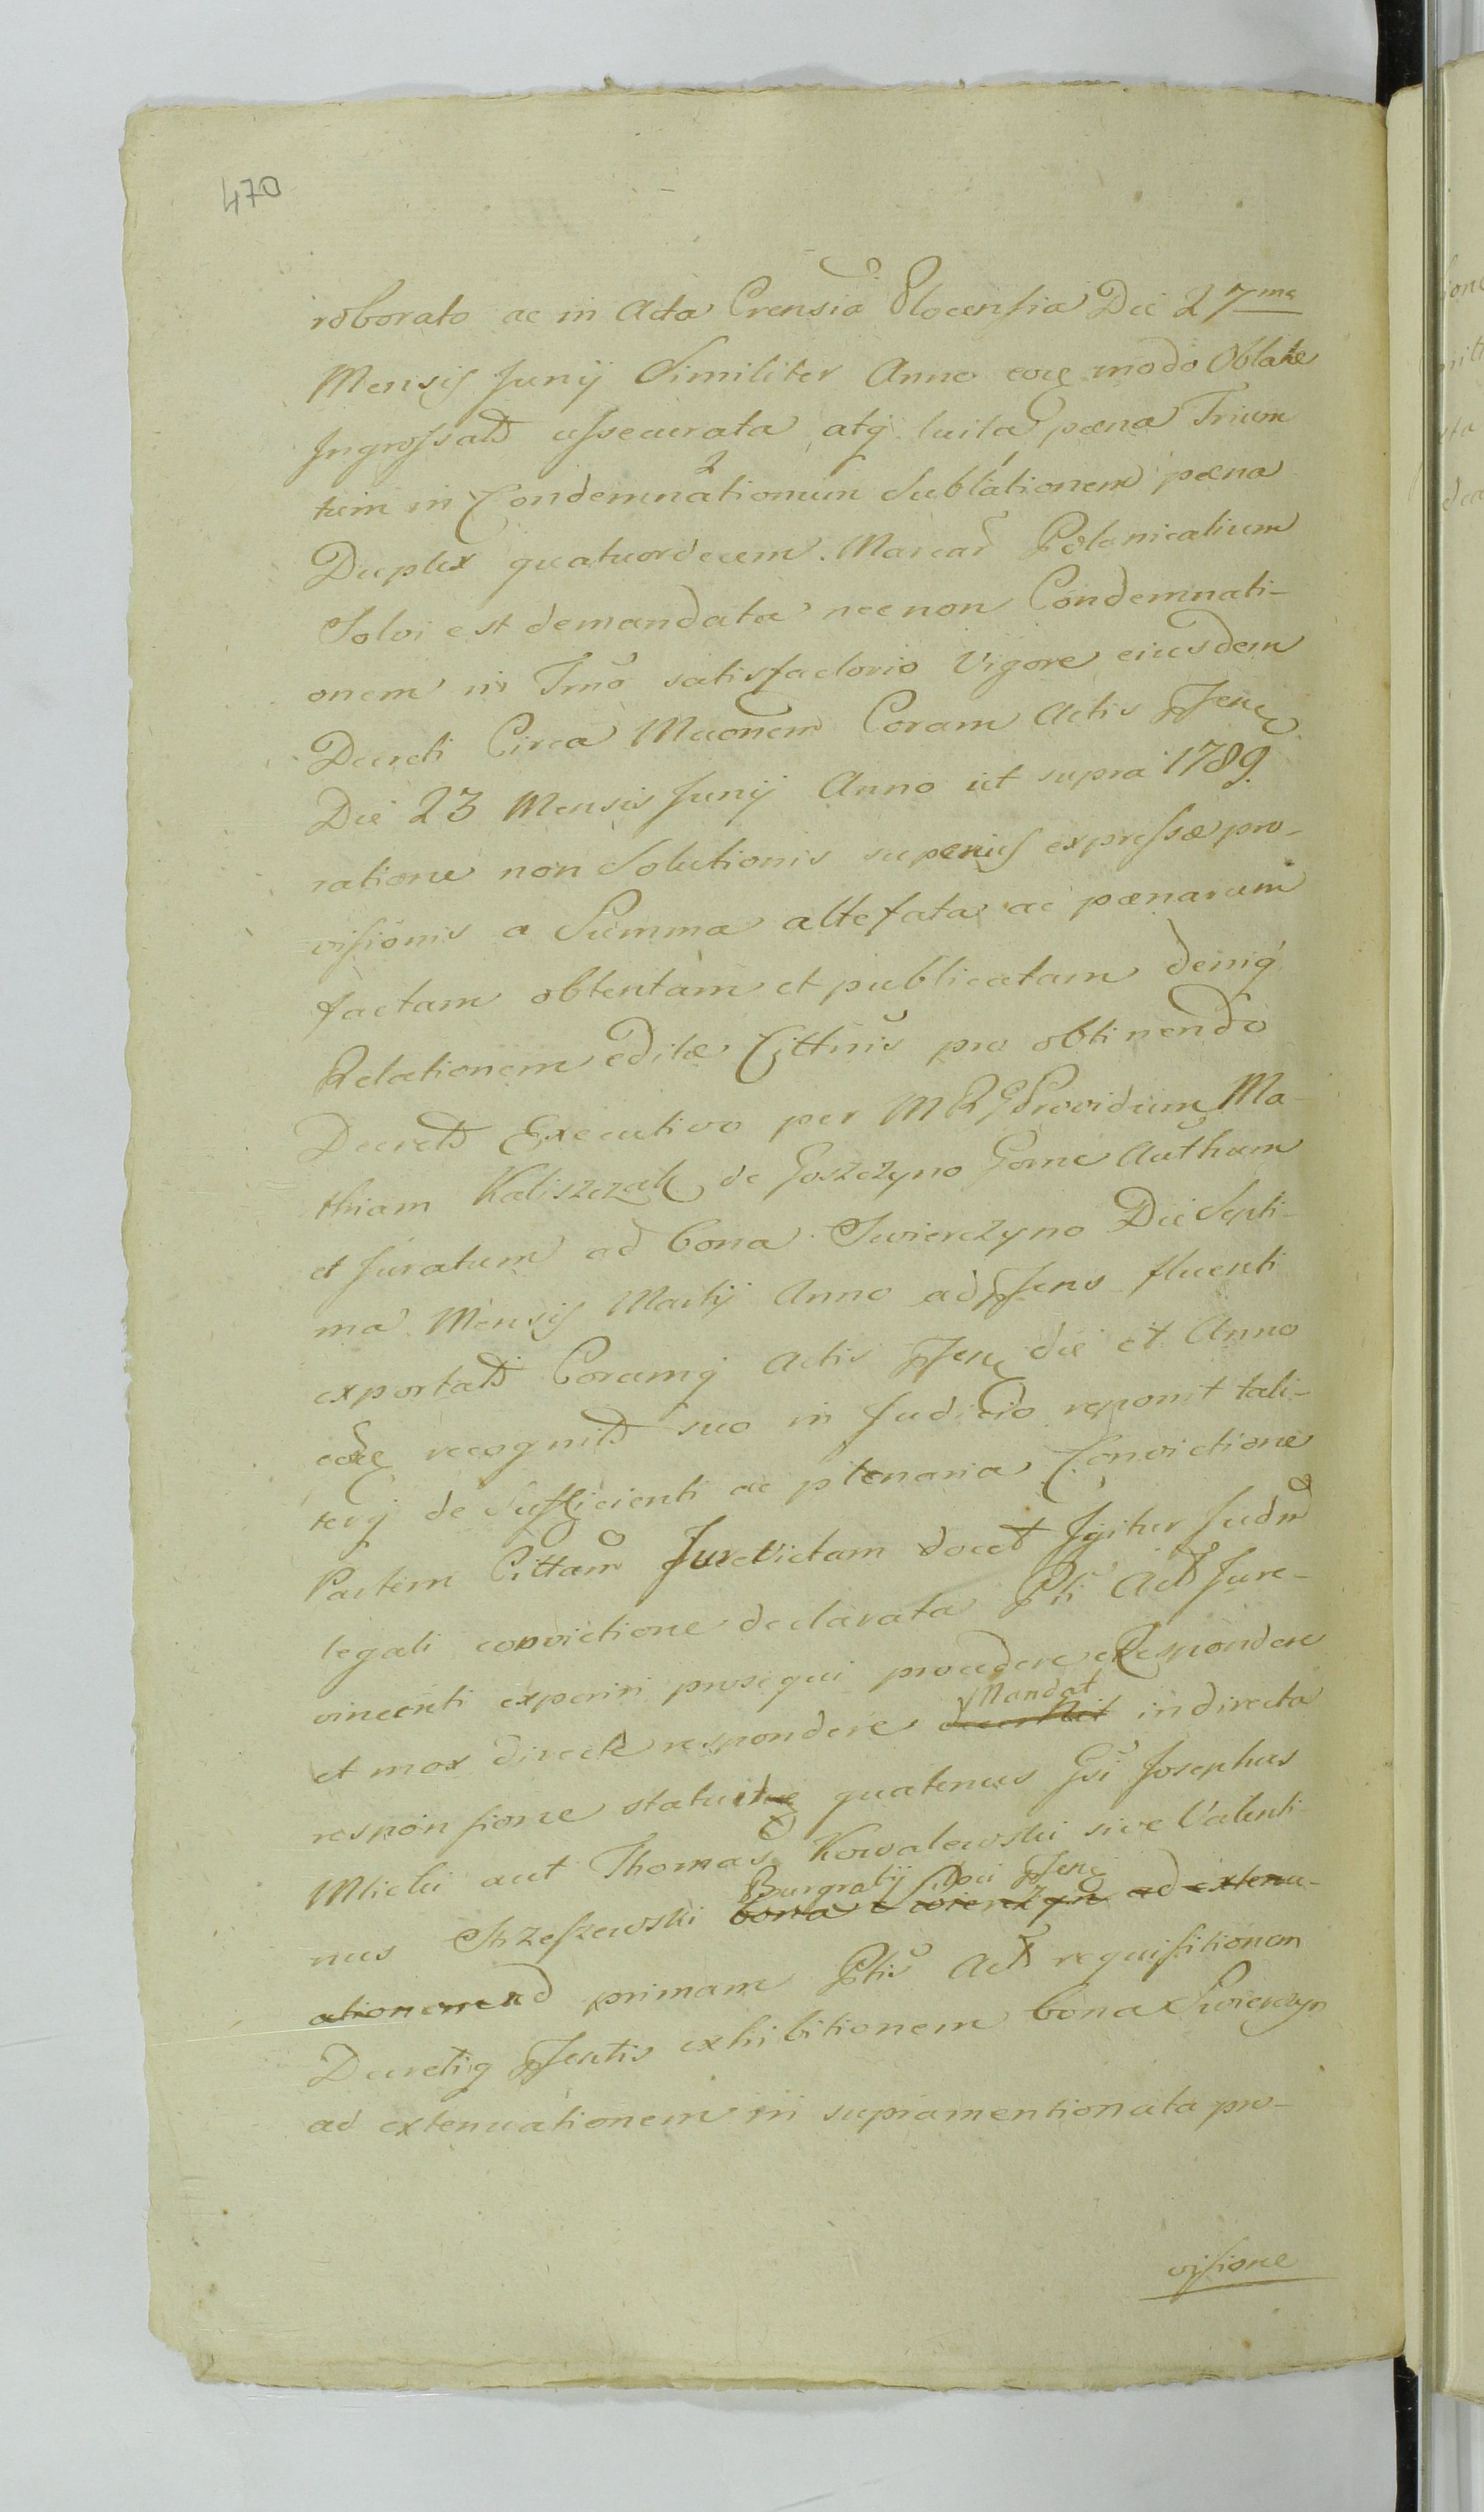 470
roborato ac in Acta Crensia Plocensia Die 27ma
Mensis Junij Similiter Anno eoq modo Oblatæ
Ingrossatd assecurata atq luita pæna Trium
tum in Condemnationum Sublationem pæna
Duplex quatuordecem Marcar Polonicalium
Solvi est demandata nec non Condemnati-
onem in Tmo satisfactorio Vigore eiusdem
Decreti Circa Mœonem Coram Actis
Die 23 Mensis Junij Anno ut supra 1789.
ratione non Solutionis superius expressæ pro-
visionis a Summa altefata ac pænarum
factam obtentam et publicatam deniq
Relationem editæ Cittnis pro obtinendo
Decretd Executivo per M R G Providum Ma-
thiam Kaliszczak de Goszczyno Gorne Authum
et Juratum ad bona Swierczyno Die Septi-
ma Mensis Martij Anno ad pfens fluenti
exportatd Coramq Actis die et Anno
recognitd suo in Judicio reponit tali-
terq de Sufficienti ac plenaria Convictione
Partem Cittam Jurevictam docet Igitur Judm
legali convictione declarata Pti Act Jure-
vincenti experiri prosequi procedere et Respondere
et mox directe respondere Mandat indirecta
responsione statuit quatenus Gsi Josephus
Mlicki aut Thomas Kowalewski sive Valenti
nus Strzeszewski Burgrabij
bona Swierczyn ad extenu-
ationem ad primam Ptis Act requisitionem
Decretiq pfentis exhibitionem bona Swierczyn
ad extenuationem in supramentionata pro-
visione